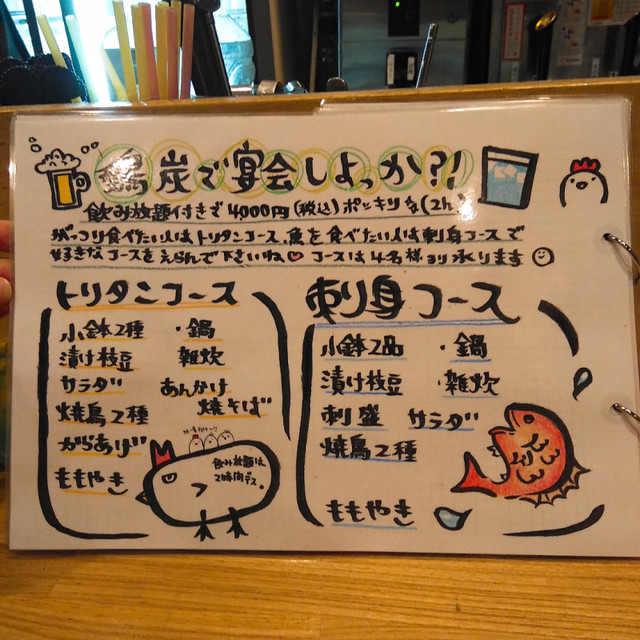 鶏炭で宴会しよっか?!
飲み放題付きで4000円(税込)ポッキリ
がっつり食べたい人はトリタンコース、魚を食べたい人は刺身コースで
好きなコースをえらんで下さいね♥ コースは4名様ヨリ承ります
トリタンコース
小鉢2種 ・鍋
漬け枝豆 雑炊
サラダ あんかけ
焼鳥2種 焼そば
からあげ
ももやき
飲み放題は
2時間デス。
刺り身コース
小鉢2品 ・鍋
漬け枝豆 ・雑炊
刺盛 サラダ
焼鳥2種
ももやき